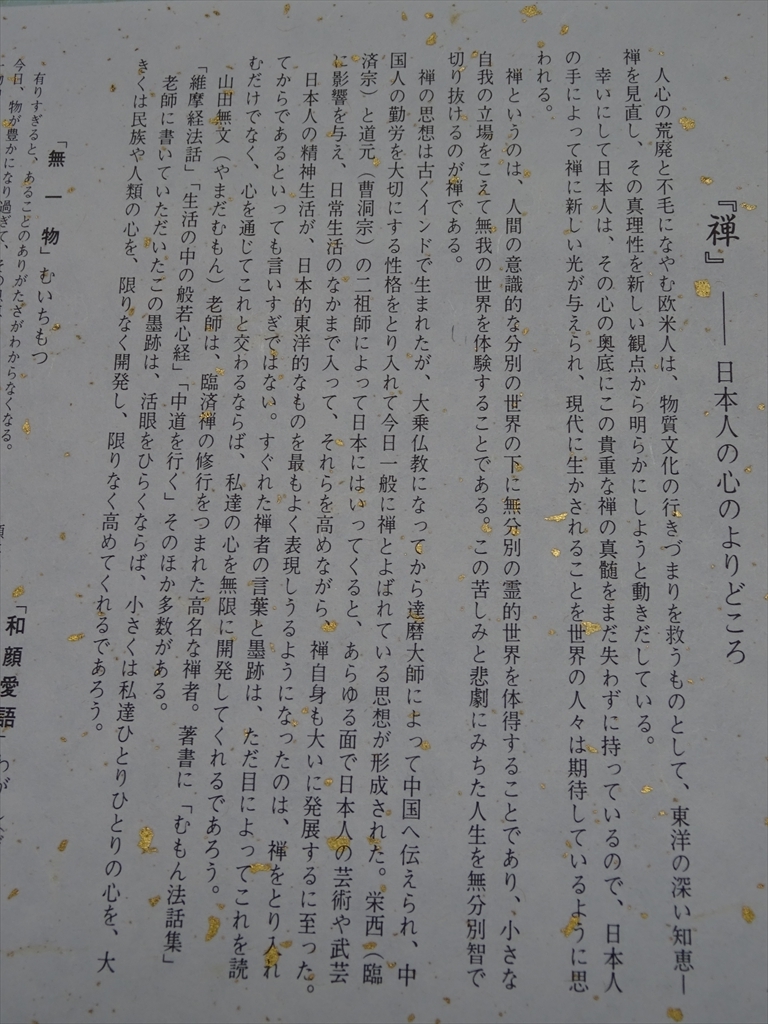 『禅』―― 日本人の心のよりどころ
人心の荒廃と不毛になやむ欧米人は、物質文化の行きづまりを救うものとして、東洋の深い知恵―
禅を見直し、その真理性を新しい観点から明らかにしようと動きだしている。
幸いにして日本人は、その心の奥底にこの貴重な禅の真髄をまだ失わずに持っているので、日本人
の手によって禅に新しい光が与えられ、現代に生かされることを世界の人々は期待しているように思
われる。
禅というのは、人間の意識的な分別の世界の下に無分別の霊的世界を体得することであり、小さな
自我の立場をこえて無我の世界を体験することである。この苦しみと悲劇にみちた人生を無分別智で
切り抜けるのが禅である。
禅の思想は古くインドで生まれたが、大乗仏教になってから達磨大師によって中国へ伝えられ、中
国人の勤労を大切にする性格をとり入れて今日一般に禅とよばれている思想が形成された。栄西（臨
済宗）と道元（曹洞宗）の二祖師によって日本にはいってくると、あらゆる面で日本人の芸術や武芸
に影響を与え、日常生活のなかまで入って、それらを高めながら、禅自身も大いに発展するに至った。
日本人の精神生活が、日本的東洋的なものを最もよく表現しうるようになったのは、禅をとり入れ
てからであるといっても言いすぎではない。すぐれた禅者の言葉と墨跡は、ただ目によってこれを読
むだけでなく、心を通じてこれと交わるならば、私達の心を無限に開発してくれるであろう。
山田無文（やまだむもん）老師は、臨済禅の修行をつまれた高名な禅者。著書に「むもん法話集」
「維摩経法話」「生活の中の般若心経」「中道を行く」そのほか多数がある。
老師に書いていただいたこの墨跡は、活眼をひらくならば、小さくは私達ひとりひとりの心を、大
きくは民族や人類の心を、限りなく開発し、限りなく高めてくれるであろう。
「無一物」むいちもつ
有りすぎると、あることのありがたさがわからなくなる。
今日、物が豊かになり過ぎて、その
「和顔愛語」わが